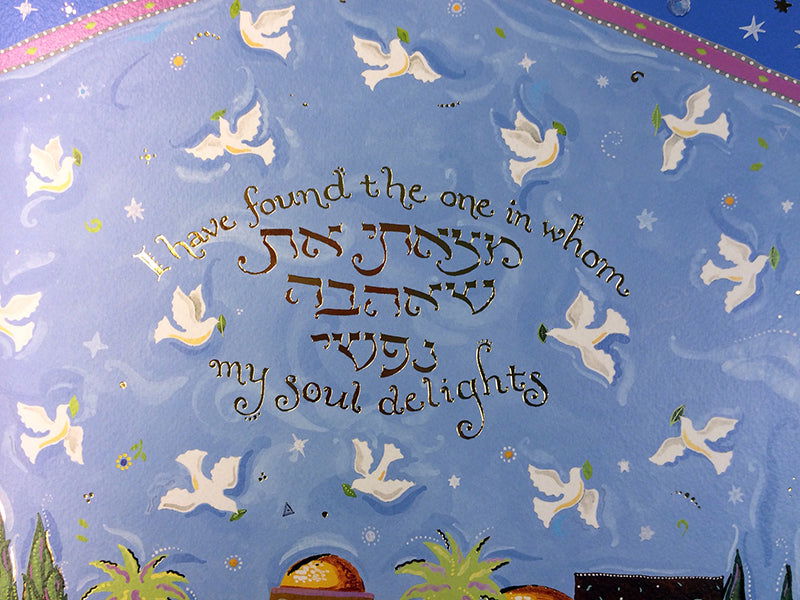 I have found the one in whom
מצאתי את
שאהבה
נפשי
my soul delights